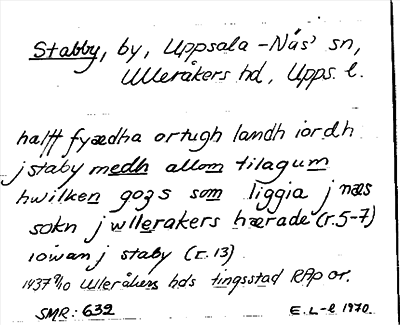 Stabby, by, Uppsala-Näs' sn,
Ulleråkers hd, Upps. l.
halff fyædha ortugh landh iordh
j staby medh allom tilagum
hwilken gozs som liggia j næs
sokn j wllerakers hærade (r. 5-7)
iowan j staby (r. 13)
1437 Ulleråkers hds tingsstad RAp or.
SMR: 632
E. L-e 1970.